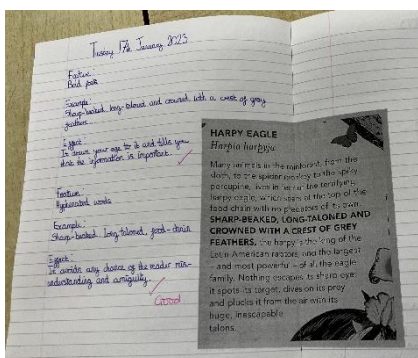 Tuesday 17th January 2023
Feature:
Bold font
Example:
Sharp-beaked, long-taloned and crowned with a crest of grey
feathers.
Effect:
It draws your eye to it and tells you
that the information is important.
Feature:
Hyphenated words
Example:
Sharp-beaked, long-taloned, food-chain
Effect:
It avoids any chance of the reader mis-
understanding and ambiguity.
Good
HARPY EAGLE
Harpia harpyja
Many animals in the rainforest, from the
sloth, to the spider monkey to the spiky
porcupine, live in fear of the terrifying
harpy eagle, which sits at the top of the
food chain with no predators of its own.
SHARP-BEAKED, LONG-TALONED AND
CROWNED WITH A CREST OF GREY
FEATHERS, the harpy is the king of the
Latin American raptors, and the largest
– and most powerful – of all the eagle
family. Nothing escapes its sharp eye:
it spots its target, dives on its prey
and plucks it from the air with its
huge, inescapable
talons.